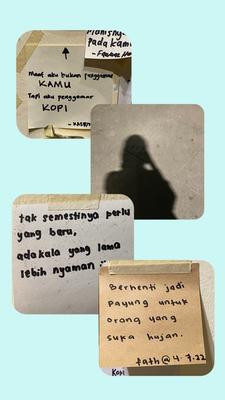 Manisny-
pada kamu
Maaf aku bukan penggemar
KAMU
Tapi aku penggemar
KOPI
tak semestinya perlu
yang baru,
adakala yang lama
lebih nyaman
Berhenti jadi
payung untuk
orang yang
suka hujan.
fath@4.7.22
Kopi